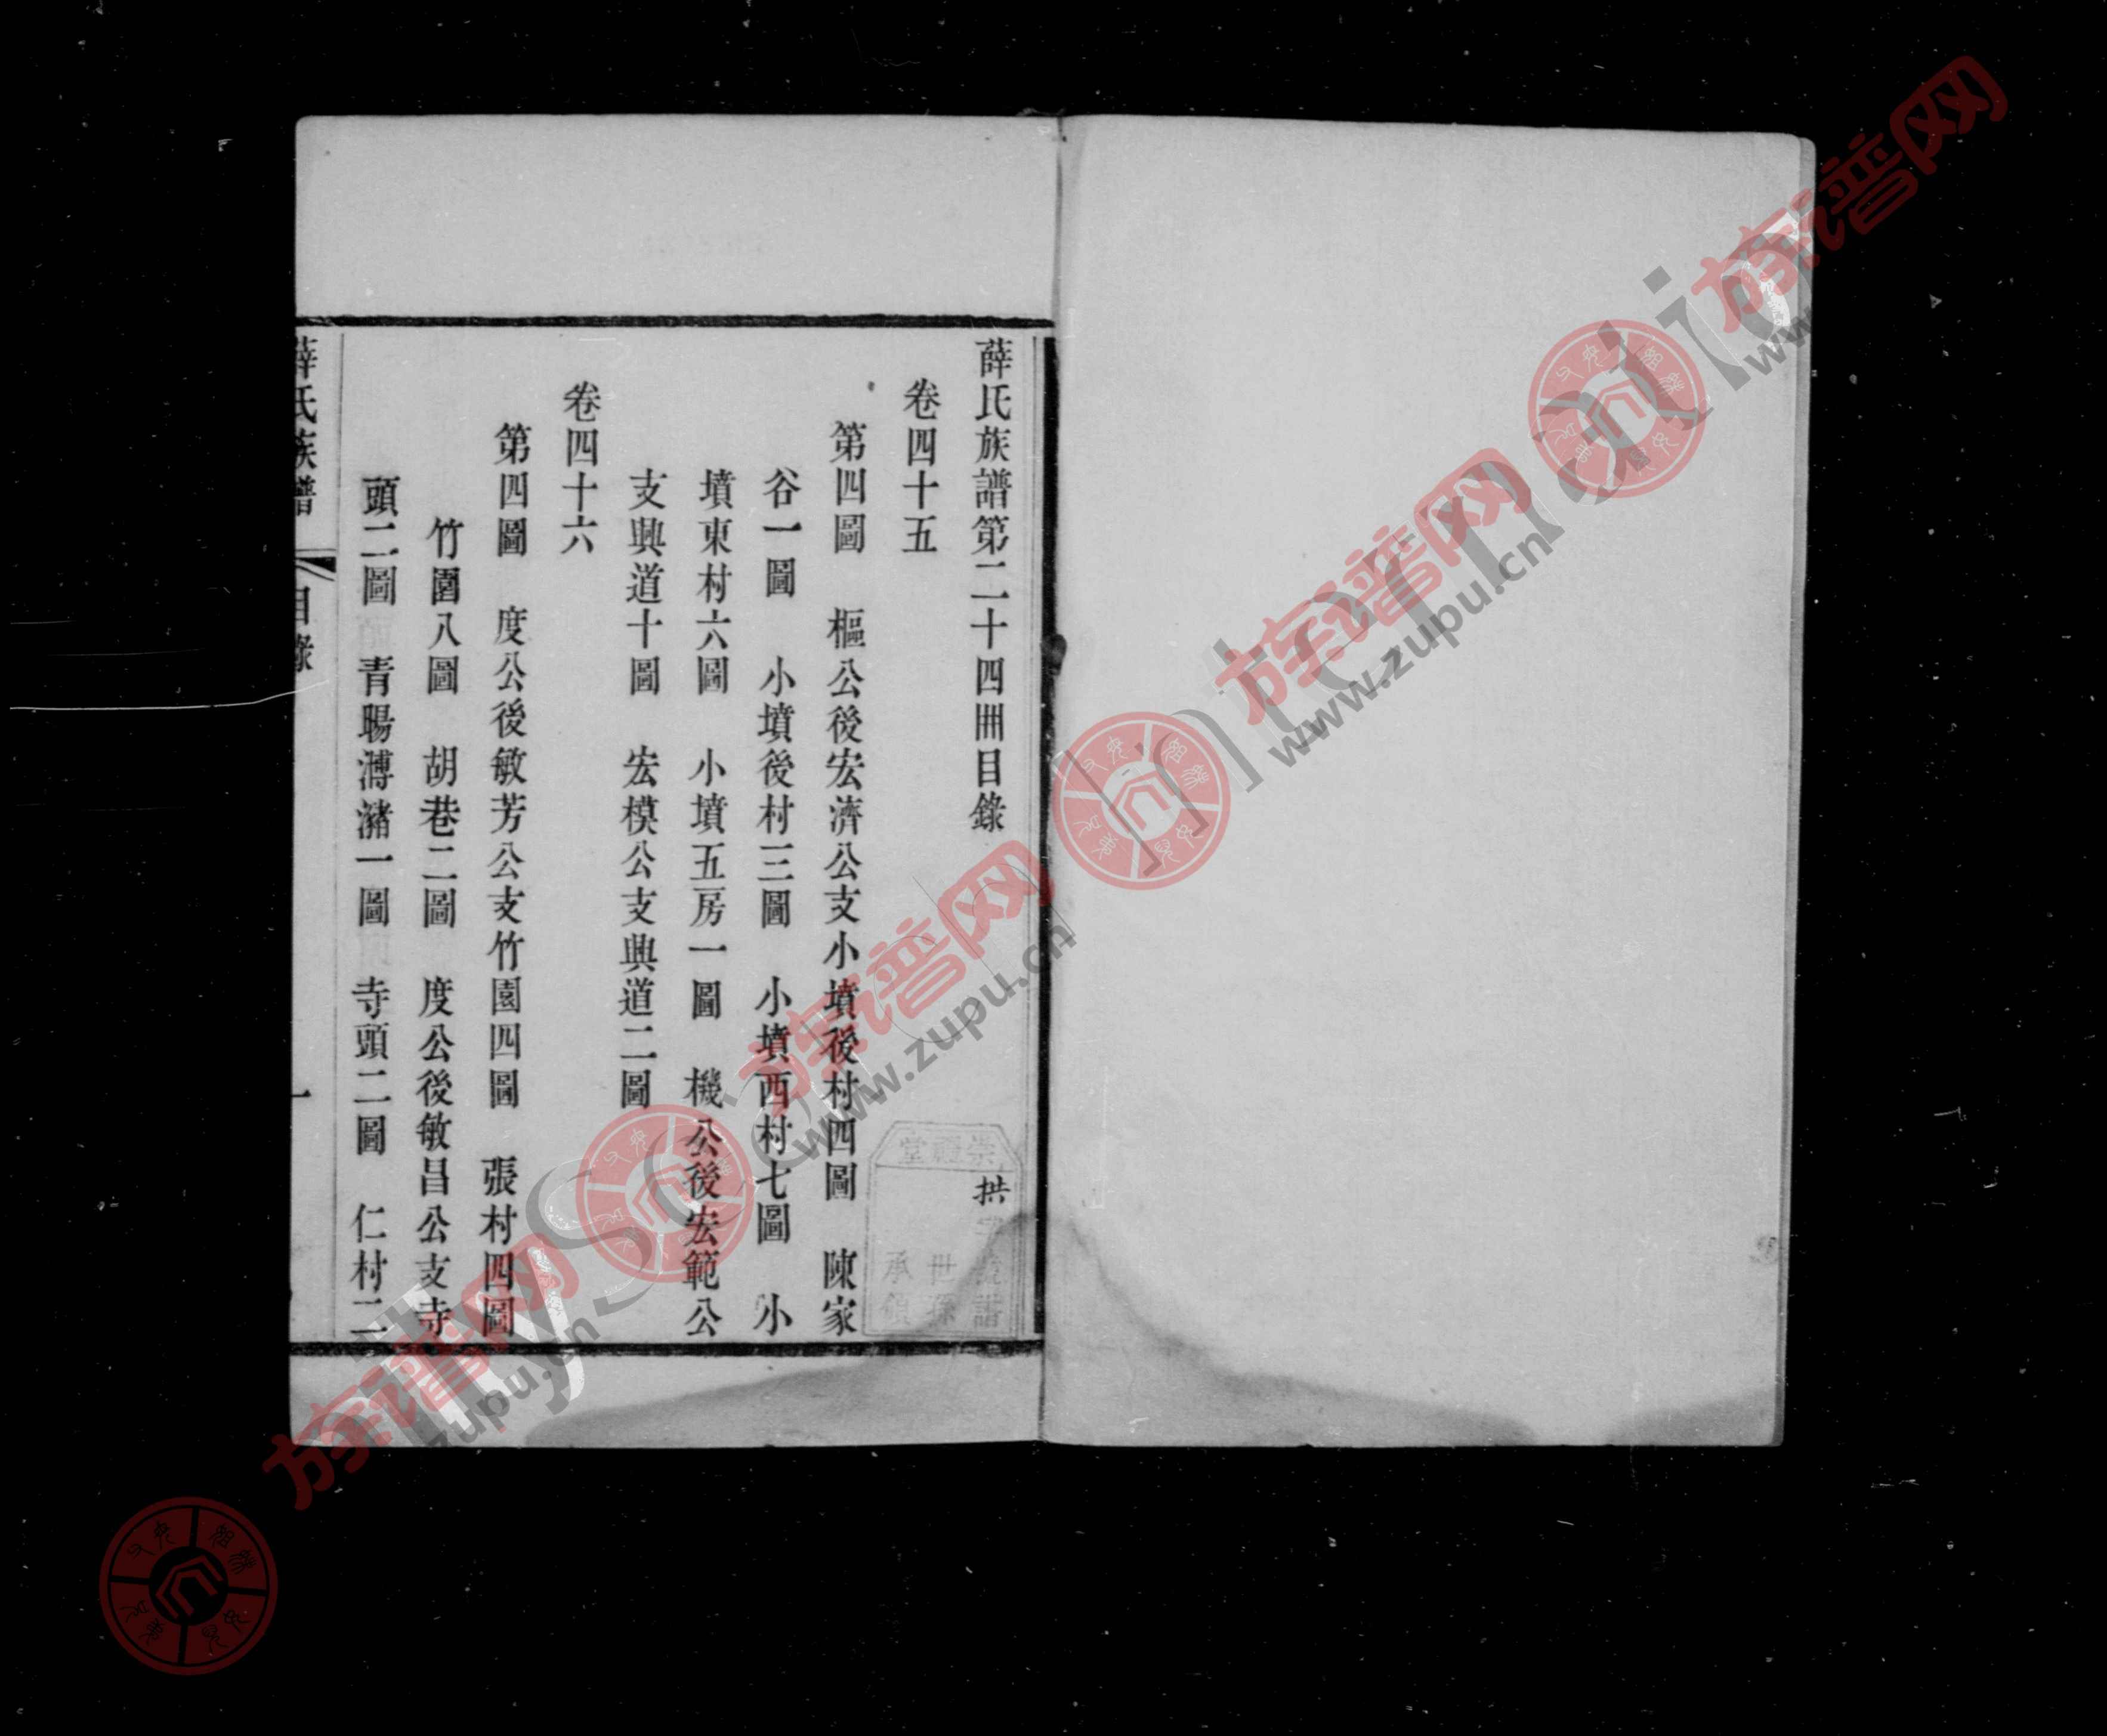 薛氏族譜第二十四冊目錄
卷四十五
第四圖　樞公後宏濟公支小墳後村四圖　陳家
谷一圖　小墳後村三圖　小墳西村七圖　小
墳東村六圖　小墳五房一圖　機公後宏範公
支興道十圖　宏模公支興道二圖
卷四十六
第四圖　度公後敏芳公支竹園四圖　張村四圖
竹園八圖　胡巷二圖　度公後敏昌公支寺
頭二圖　青暘溥瀦一圖　寺頭二圖　仁村二
薛氏族譜　目錄　一
崇禮堂
拱
世孫
承領
族谱网
www.zupu.cn
族谱网
www.zupu.cn
族谱网
www.zupu.cn
族谱网
zupu.cn